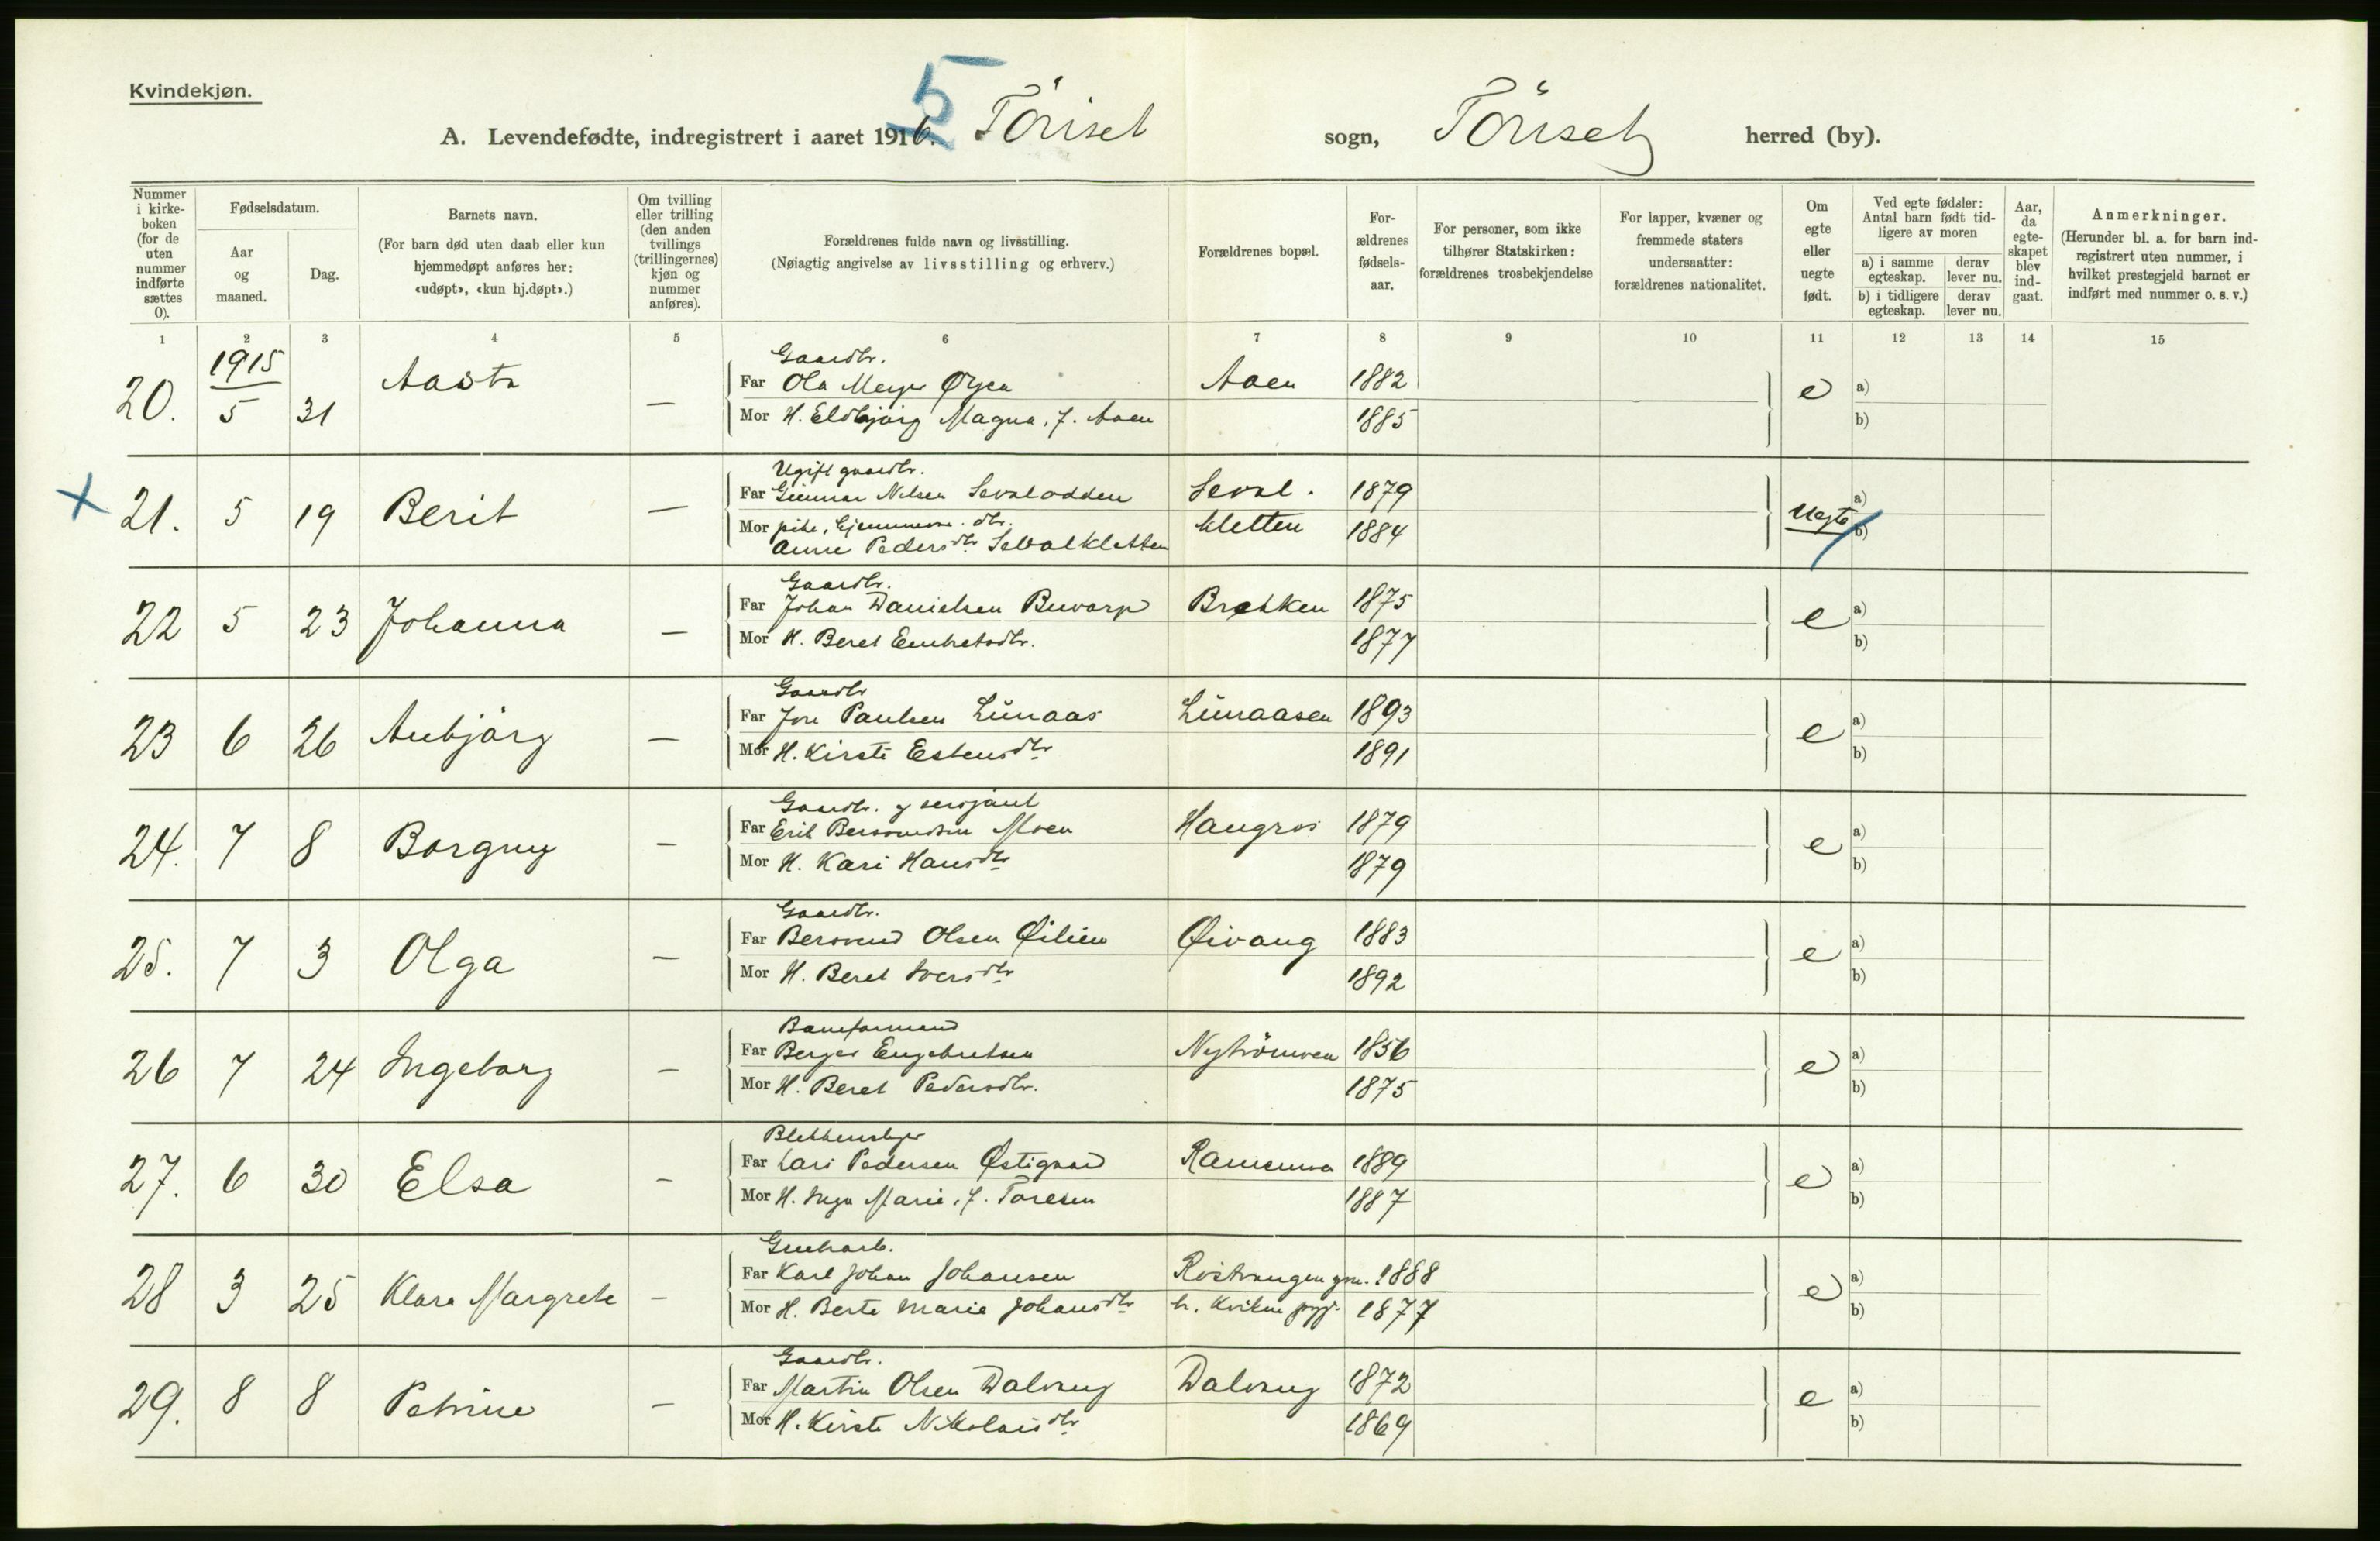 Kvindekjøn.
A. Levendefødte, indregistrert i aaret 1915. Töriset sogn, Töriset herred (by).
Nummer i kirkeboken (for de uten nummer indførte sættes 0).
Fødselsdatum.
Aar og maaned.
Dag.
Barnets navn.
(For barn død uten daab eller kun hjemmedøpt anføres her: «udøpt», «kun hj.døpt».)
Om tvilling eller trilling (den anden tvillings (trillingernes) kjøn og nummer anføres).
Forældrenes fulde navn og livsstilling.
(Nøiagtig angivelse av livsstilling og erhverv.)
Forældrenes bopæl.
Forældrenes fødselsaar.
For personer, som ikke tilhører Statskirken: forældrenes trosbekjendelse
For lapper, kvæner og fremmede staters undersaatter: forældrenes nationalitet.
Om egte eller uegte født.
Ved egte fødsler: Antal barn født tidligere av moren
a) i samme egteskap. derav lever nu.
b) i tidligere egteskap. derav lever nu.
Aar, da egteskapet blev indgaat.
Anmerkninger.
(Herunder bl. a. for barn indregistrert uten nummer, i hvilket prestegjeld barnet er indført med nummer o. s. v.)
1 2 3 4 5 6 7 8 9 10 11 12 13 14 15
1915
Gaardbr.
20. 5 31 Aasta — Far Ola Meyer Aaen 1882 e a)
Mor H. Eldbjörg Magna, f. Aaen 1885 b)
Ugift gaardbr.
21. 5 19 Berit — Far Gunnar Nilsen Sevalodden Seval. 1879 Uegte a)
Mor pike, hjemmev. dtr. kletten 1884 b)
Anne Pedersdtr Sevalkletten
Gaardbr.
22 5 23 Johanna — Far Johan Danielsen Buvarp Brekken 1875 e a)
Mor H. Beret Embretsdtr. 1877 b)
Gaardbr
23 6 26 Anbjörg — Far Jon Paulsen Lunaas Lunaasen 1893 e a)
Mor H. Kirsti Estensdtr 1891 b)
Gaardbr. og sersjant
24. 7 8 Borgny — Far Erik Bersvendsen Moen Haugros 1879 e a)
Mor H. Kari Hansdtr 1879 b)
Gaardbr.
25. 7 3 Olga — Far Bersvend Olsen Øilien Øivang 1883 e a)
Mor H. Beret Iversdtr 1892 b)
Baneformand
26 7 24 Ingeborg — Far Berger Engebretsen Nyströmoen 1856 e a)
Mor H. Beret Pedersdtr. 1875 b)
Blikkenslager
27. 6 30 Elsa — Far Lars Pedersen Østigaard Ramsmoen 1889 e a)
Mor H. Inga Marie, f. Toresen 1887 b)
Grubearb.
28 3 25 Klara Margrete — Far Karl Johan Johansen Röstvangen 1888 e a)
Mor H. Berte Marie Johansdtr Kvikne prgj. 1877 b)
Gaardbr.
29. 8 8 Petrine — Far Martin Olsen Dalvang Dalvang 1872 e a)
Mor H. Kirsti Nikolaisdtr 1869 b)